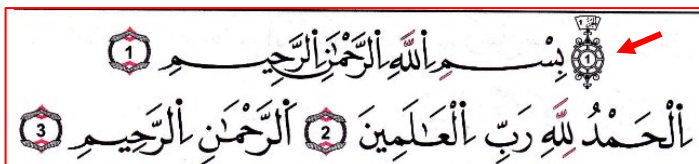 1 بِسْمِ اِ۬للَّهِ اِ۬لرَّحْمَٰنِ اِ۬لرَّحِيمِ 1
اِ۬لْحَمْدُ لِلَّهِ رَبِّ اِ۬لْعَٰلَمِينَ 2 اَ۬لرَّحْمَٰنِ اِ۬لرَّحِيمِ 3